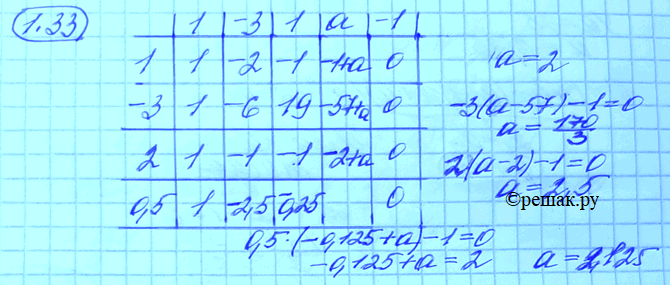 1.33
1 -3 1 a -1
1 1 -2 -1 -1+a 0
a=2
-3 1 -6 19 -57+a 0
-3(a-57)-1=0
a=170/3
2 1 -1 -1 -2+a 0
2(a-2)-1=0
a=2,5
0,5 1 -2,5 -0,25 0
©решак.ру
0,5·(-0,125+a)-1=0
-0,125+a=2
a=2,125